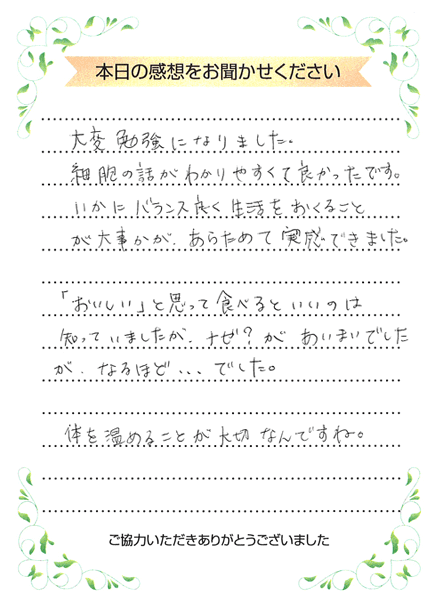 本日の感想をお聞かせください
大変勉強になりました。
細胞の話がわかりやすくて良かったです。
いかにバランス良く生活をおくること
が大事かが、あらためて実感できました。
「おいしい」と思って食べるといいのは
知っていましたが、ナゼ?があいまいでした
が、なるほど...でした。
体を温めることが大切なんですね。
ご協力いただきありがとうございました